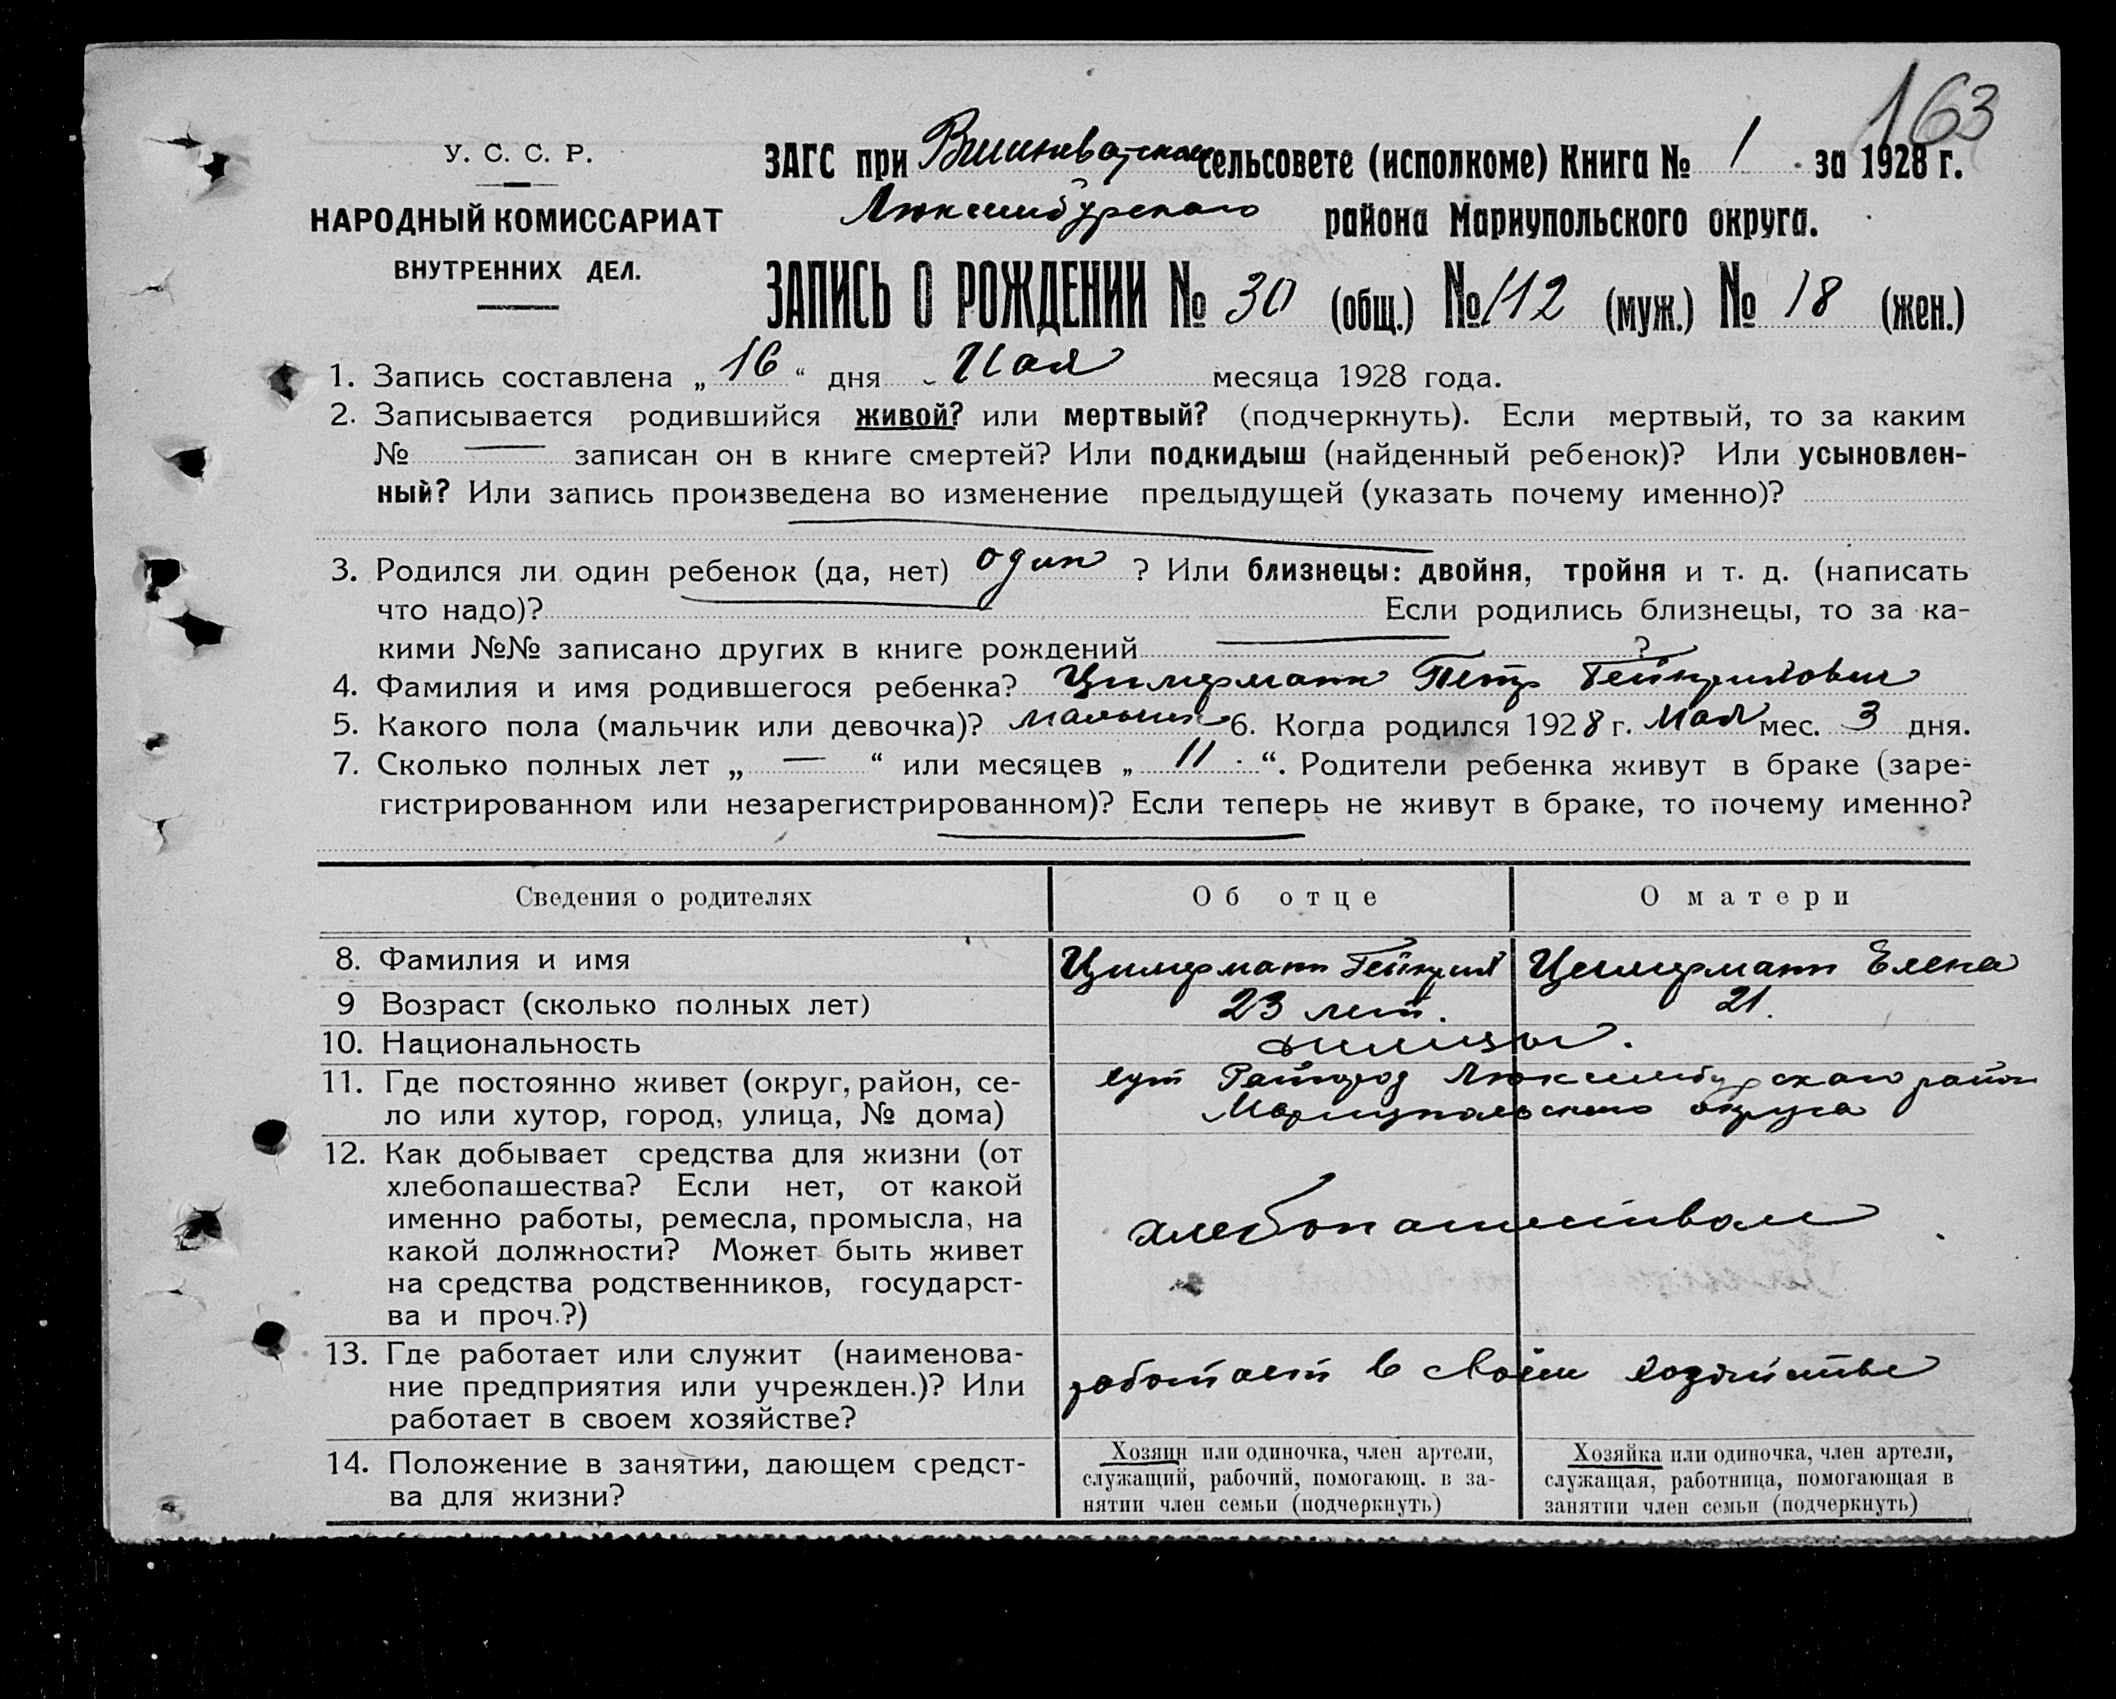 163
У. С. С. Р.
НАРОДНЫЙ КОМИССАРИАТ
ВНУТРЕННИХ ДЕЛ.
ЗАГС при Вишневатском сельсовете (исполкоме) Книга № 1 за 1928 г.
Люксембургского района Мариупольского округа.
ЗАПИСЬ О РОЖДЕНИИ № 30 (общ.) № 112 (муж.) № 18 (жен.)
1. Запись составлена „ 16 “ дня Мая месяца 1928 года.
2. Записывается родившийся живой? или мертвый? (подчеркнуть). Если мертвый, то за каким
№ — записан он в книге смертей? Или подкидыш (найденный ребенок)? Или усыновлен-
ный? Или запись произведена во изменение предыдущей (указать почему именно)?
3. Родился ли один ребенок (да, нет) один ? Или близнецы: двойня, тройня и т. д. (написать
что надо)? Если родились близнецы, то за ка-
кими №№ записано других в книге рождений — ?
4. Фамилия и имя родившегося ребенка? Цимерманн Петр Гейнрихович
5. Какого пола (мальчик или девочка)? мальчик 6. Когда родился 1928 г. Мая мес. 3 дня.
7. Сколько полных лет „ — “ или месяцев „ 11 “. Родители ребенка живут в браке (заре-
гистрированном или незарегистрированном)? Если теперь не живут в браке, то почему именно?
Сведения о родителях Об отце О матери
8. Фамилия и имя Цимерманн Гейнрих Цимерманн Елена
9 Возраст (сколько полных лет) 23 лет. 21.
10. Национальность
11. Где постоянно живет (округ, район, се-
ло или хутор, город, улица, № дома)
хут Райгород Люксембургского район
Мариупольского округа
12. Как добывает средства для жизни (от
хлебопашества? Если нет, от какой
именно работы, ремесла, промысла, на
какой должности? Может быть живет
на средства родственников, государст-
ва и проч.?)
хлебопашеством
13. Где работает или служит (наименова-
ние предприятия или учрежден.)? Или
работает в своем хозяйстве?
работает в своем хозяйстве
14. Положение в занятии, дающем средст-
ва для жизни?
Хозяин или одиночка, член артели,
служащий, рабочий, помогающ. в за-
нятии член семьи (подчеркнуть)
Хозяйка или одиночка, член артели,
служащая, работница, помогающая в
занятии член семьи (подчеркнуть)